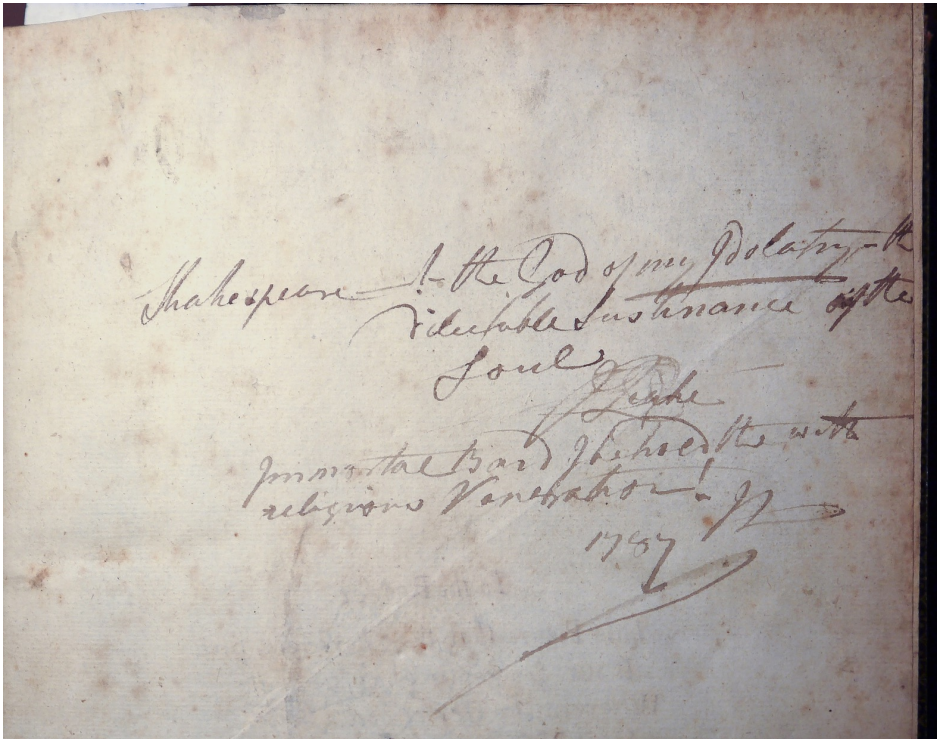 Shakespeare—! the God of my Idolatry – the
delectable Sustinance of the
Soul
Immortal Bard I behold the with
religious Veneration!
1787